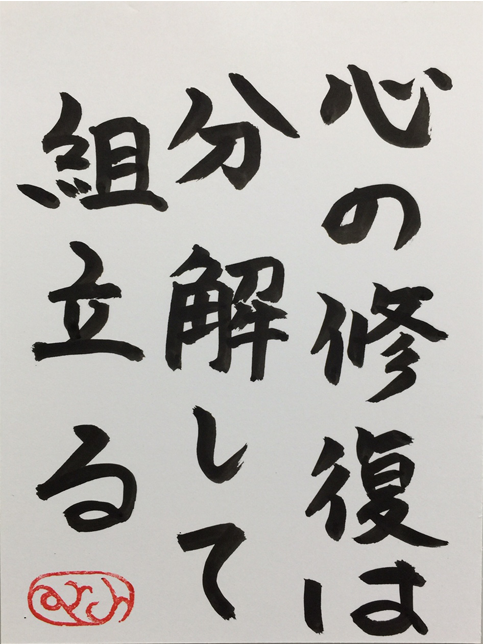 心の修復は
分解して
組立る